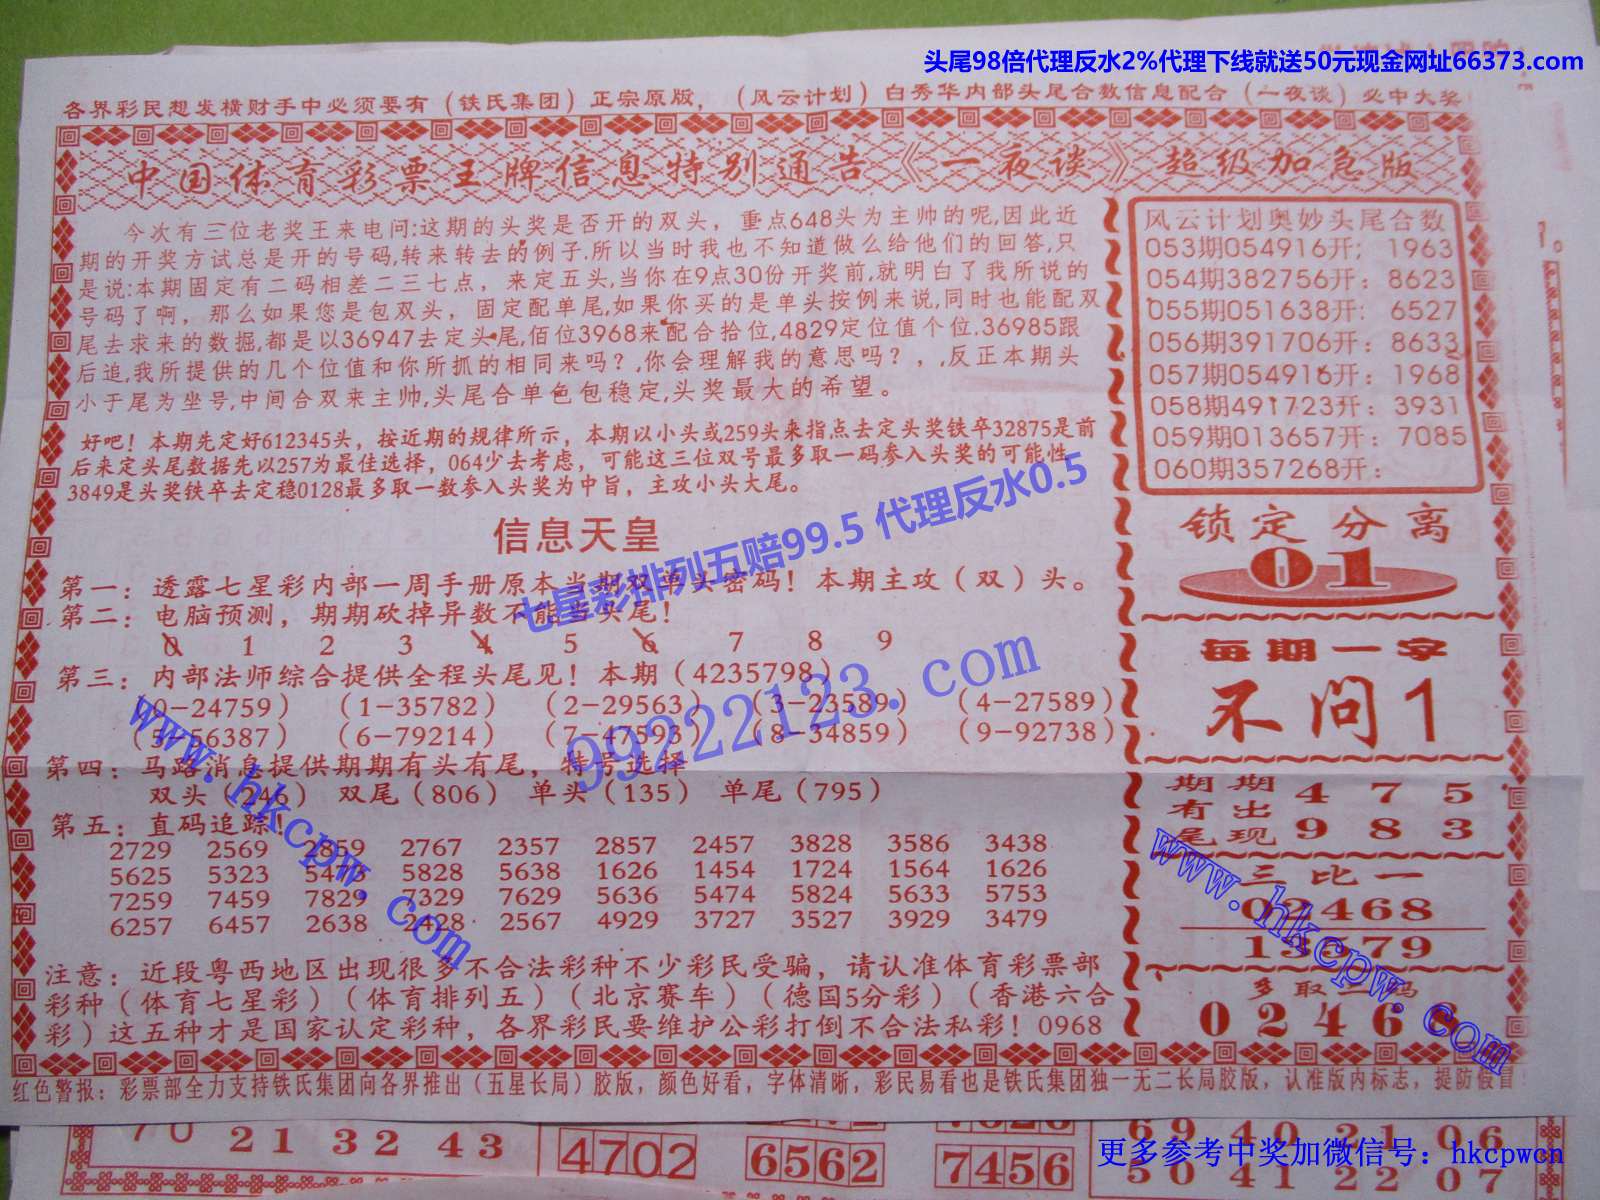 头尾98倍代理反水2%代理下线就送50元现金网址66373.com
各界彩民想发横财手中必须要有（铁氏集团）正宗原版，（风云计划）白秀华内部头尾合数信息配合（一夜谈）必中大奖
中国体育彩票王牌信息特别通告《一夜谈》超级加急版
今次有三位老奖王来电问:这期的头奖是否开的双头，重点648头为主帅的呢,因此近
期的开奖方试总是开的号码,转来转去的例子.所以当时我也不知道做么给他们的回答,只
是说:本期固定有二码相差二三七点，来定五头,当你在9点30份开奖前,就明白了我所说的
号码了啊，那么如果您是包双头，固定配单尾,如果你买的是单头按例来说,同时也能配双
尾去求来的数掘,都是以36947去定头尾,佰位3968来配合拾位,4829定位值个位.36985跟
后追,我所提供的几个位值和你所抓的相同来吗？,你会理解我的意思吗？，,反正本期头
小于尾为坐号,中间合双来主帅,头尾合单色包稳定,头奖最大的希望。
好吧！本期先定好612345头，按近期的规律所示，本期以小头或259头来指点去定头奖铁卒32875是前
后来定头尾数据先以257为最佳选择，064少去考虑，可能这三位双号最多取一码参入头奖的可能性
3849是头奖铁卒去定稳0128最多取一数参入头奖为中旨，主攻小头大尾。
信息天皇
第一：透露七星彩内部一周手册原本当期双单头密码！本期主攻（双）头。
第二：电脑预测，期期砍掉异数不能当头尾！
0 1 2 3 4 5 6 7 8 9
第三：内部法师综合提供全程头尾见！本期（4235798）
（0-24759）（1-35782）（2-29563）（3-23589）（4-27589）
（5-56387）（6-79214）（7-47593）（8-34859）（9-92738）
第四：马路消息提供期期有头有尾，特号选择
双头（246） 双尾（806） 单头（135） 单尾（795）
第五：直码追踪！
2729 2569 2859 2767 2357 2857 2457 3828 3586 3438
5625 5323 5473 5828 5638 1626 1454 1724 1564 1626
7259 7459 7829 7329 7629 5636 5474 5824 5633 5753
6257 6457 2638 2428 2567 4929 3727 3527 3929 3479
注意：近段粤西地区出现很多不合法彩种不少彩民受骗，请认准体育彩票部
彩种（体育七星彩）（体育排列五）（北京赛车）（德国5分彩）（香港六合
彩）这五种才是国家认定彩种，各界彩民要维护公彩打倒不合法私彩！0968
风云计划奥妙头尾合数
053期054916开； 1963
054期382756开：8623
055期051638开： 6527
056期391706开：8633
057期054916开：1968
058期491723开：3931
059期013657开：7085
060期357268开：
锁定分离
01
每期一字
不问1
期期 4 7 5
有出
尾现 9 8 3
三比一
02468
13579
多取一码
0246
红色警报：彩票部全力支持铁氏集团向各界推出（五星长局）胶版，颜色好看，字体清晰，彩民易看也是铁氏集团独一无二长局胶版，认准版内标志，提防假冒
七星彩排列五赔99.5 代理反水0.5
99222123.com
www.hkcpw.com
www.hkcpw.com
70 21 32 43
4702 6562 7456
69 40 21 06
50 41 22 07
更多参考中奖加微信号：hkcpwcn